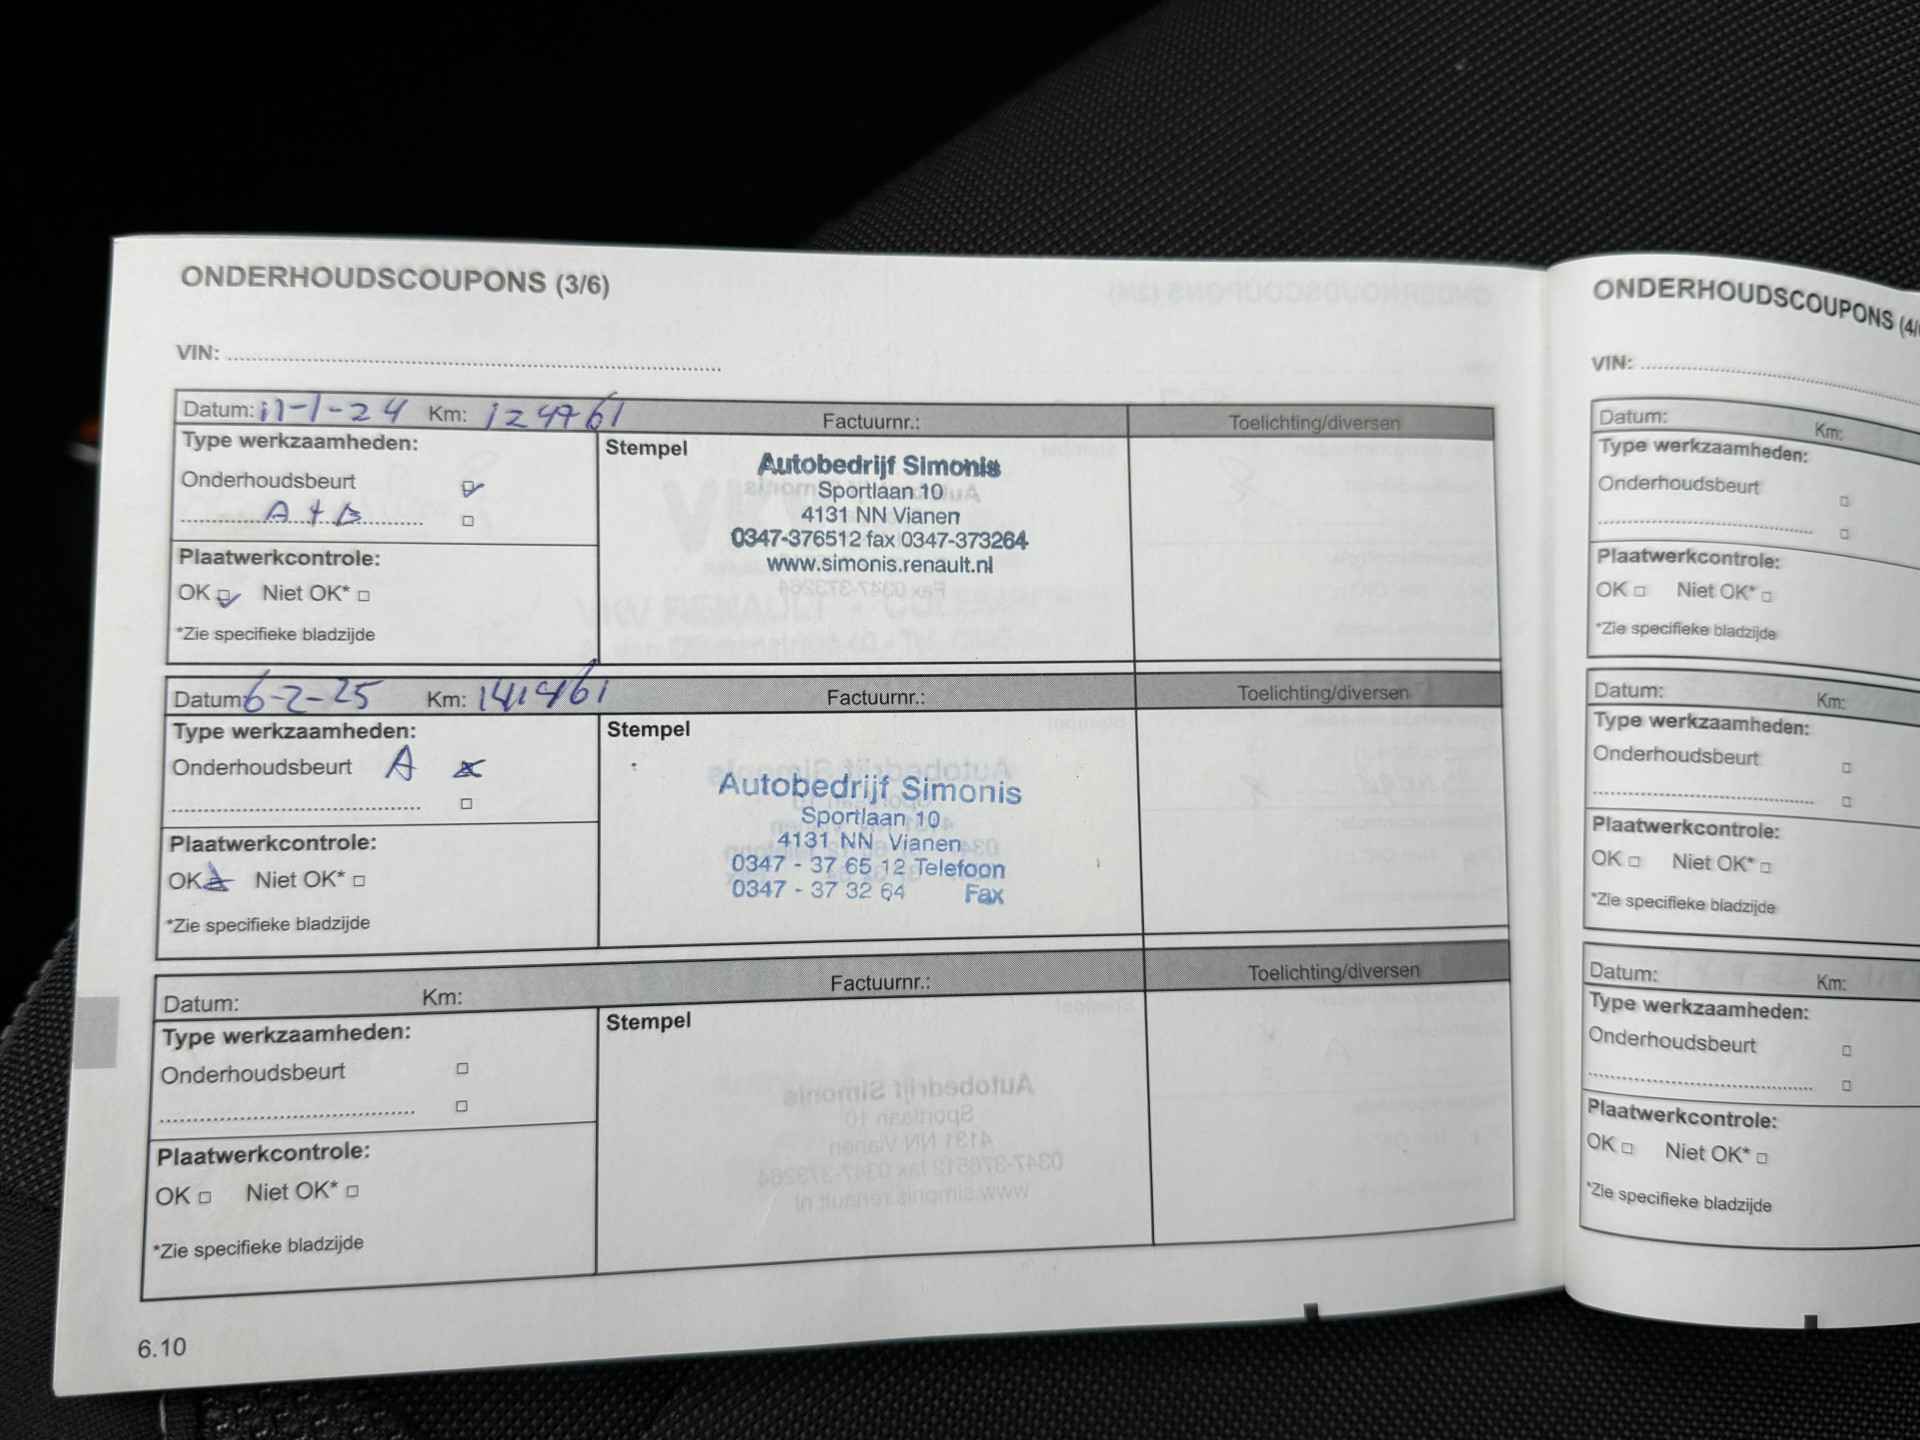 ONDERHOUDSCOUPONS (3/6)
VIN:
Datum: 11-1-24 Km: 124761 Factuurnr.: Toelichting/diversen
Type werkzaamheden:
Onderhoudsbeurt
A + B
Plaatwerkcontrole:
OK Niet OK*
*Zie specifieke bladzijde
Stempel
Autobedrijf Simonis
Sportlaan 10
4131 NN Vianen
0347-376512 fax 0347-373264
www.simonis.renault.nl
Datum: 6-2-25 Km: 141461 Factuurnr.: Toelichting/diversen
Type werkzaamheden:
Onderhoudsbeurt A
Plaatwerkcontrole:
OK Niet OK*
*Zie specifieke bladzijde
Stempel
Autobedrijf Simonis
Sportlaan 10
4131 NN Vianen
0347 - 37 65 12 Telefoon
0347 - 37 32 64 Fax
Datum: Km: Factuurnr.: Toelichting/diversen
Type werkzaamheden:
Onderhoudsbeurt
Plaatwerkcontrole:
OK Niet OK*
*Zie specifieke bladzijde
Stempel
6.10
ONDERHOUDSCOUPONS (4/
VIN:
Datum: Km:
Type werkzaamheden:
Onderhoudsbeurt
Plaatwerkcontrole:
OK Niet OK*
*Zie specifieke bladzijde
Datum: Km:
Type werkzaamheden:
Onderhoudsbeurt
Plaatwerkcontrole:
OK Niet OK*
*Zie specifieke bladzijde
Datum: Km:
Type werkzaamheden:
Onderhoudsbeurt
Plaatwerkcontrole:
OK Niet OK*
*Zie specifieke bladzijde